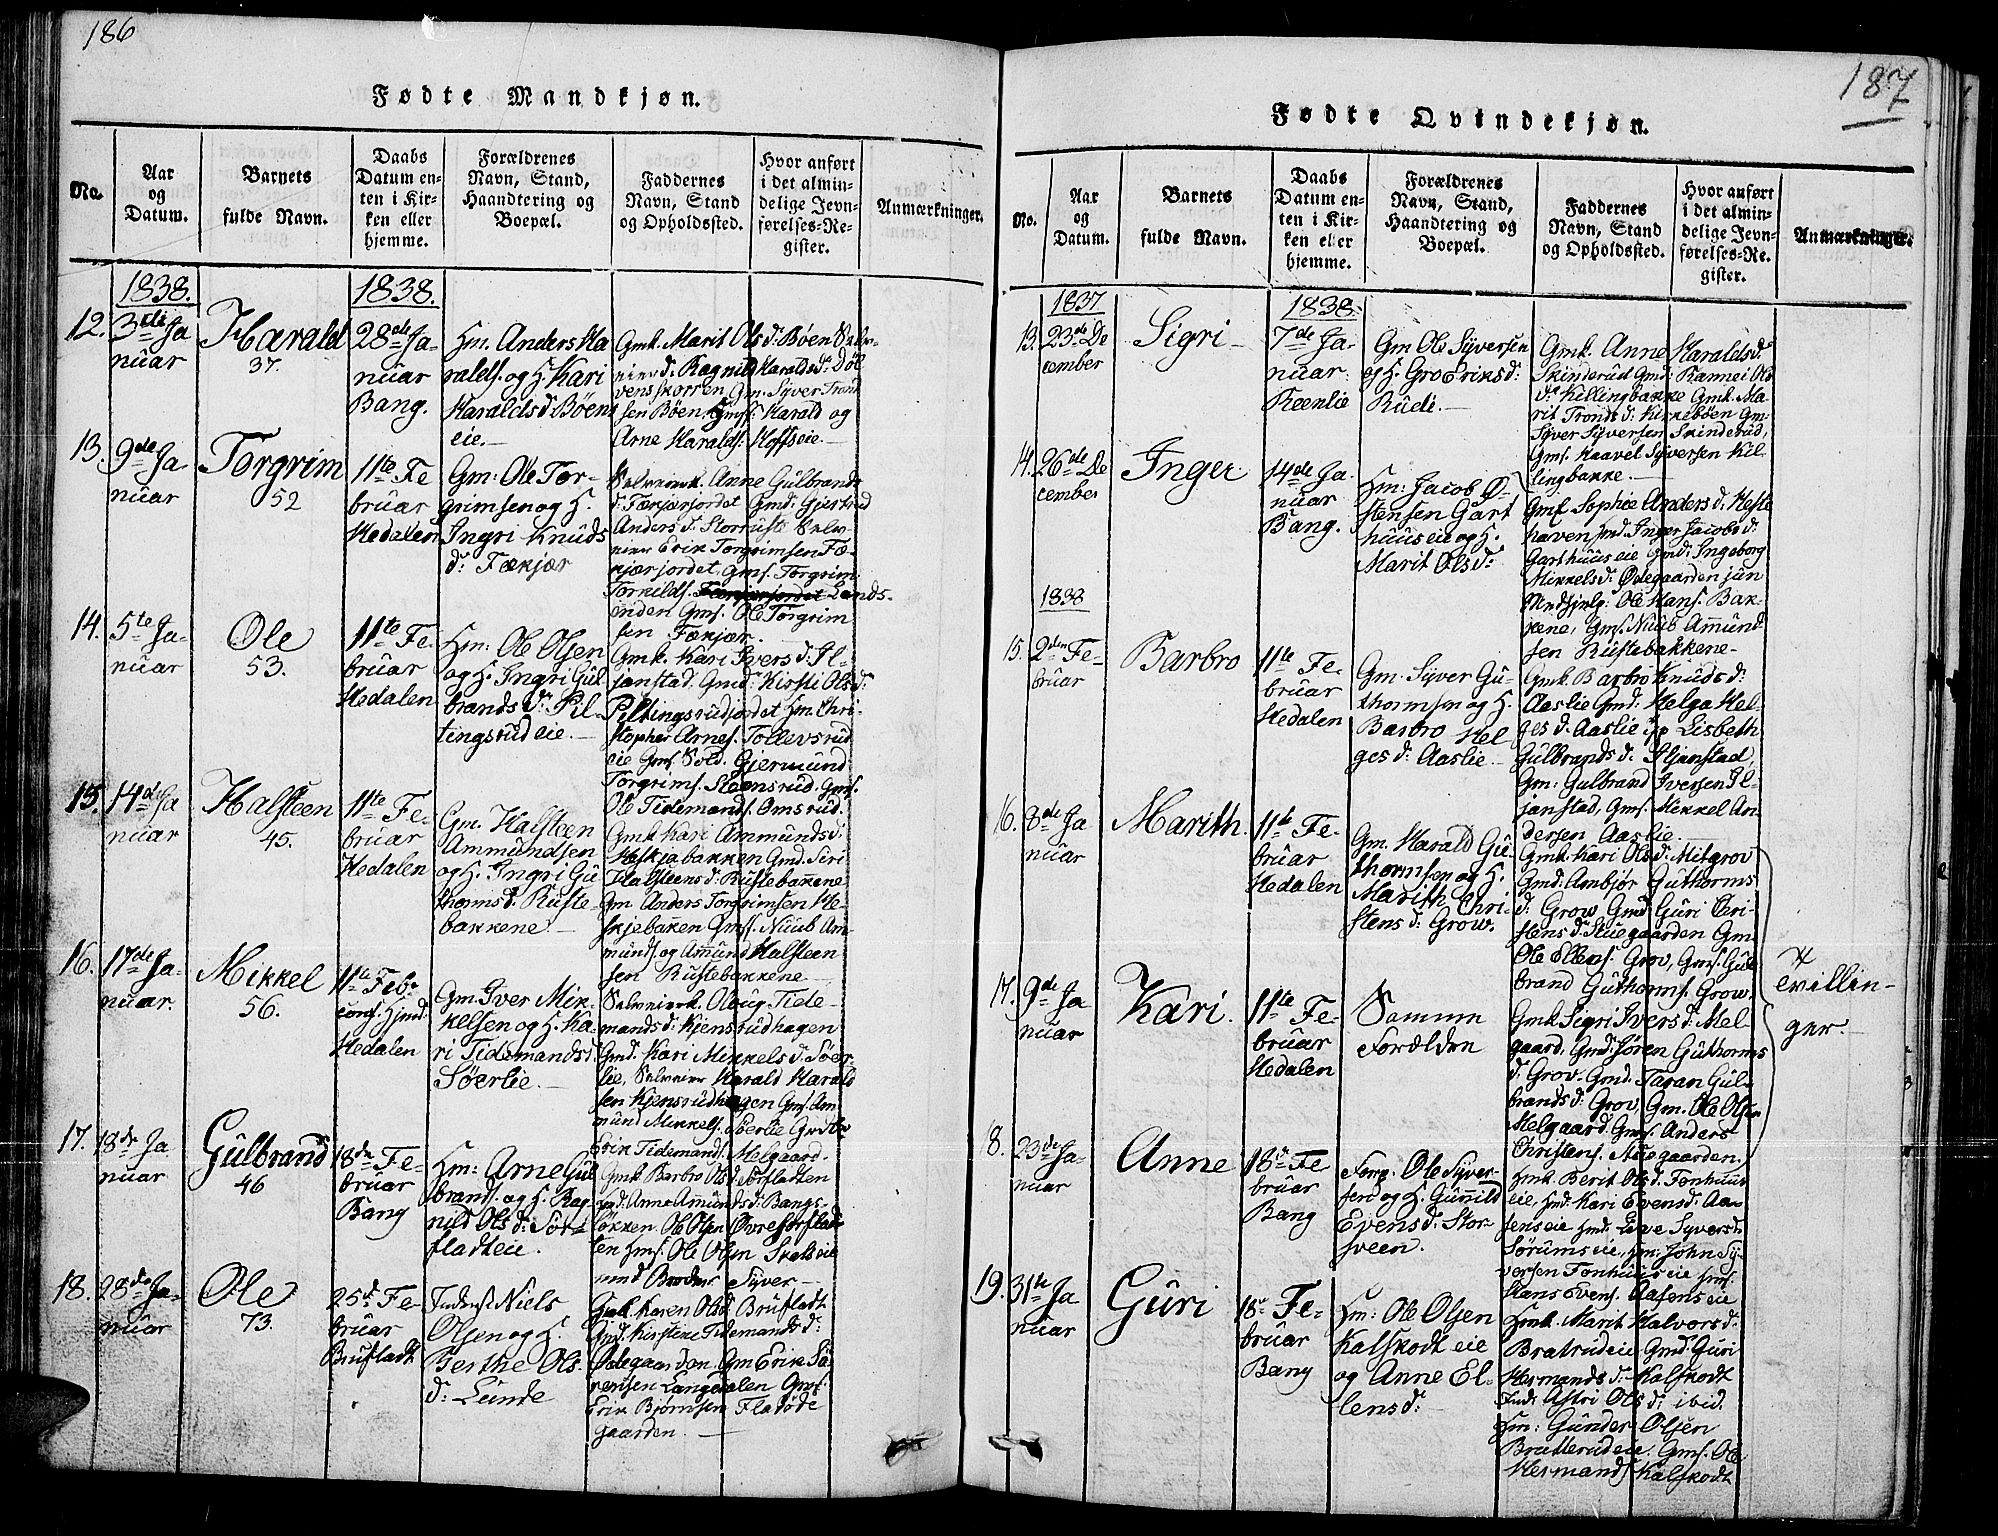 186
Fødte Mandkjøn.
No.
Aar og Datum.
Barnets fulde Navn.
Daabs Datum enten i Kirken eller hjemme.
Forældrenes Navn, Stand, Haandtering og Boepæl.
Faddernes Navn, Stand og Opholdssted.
Hvor anført i det almindelige Jevnførelses-Register.
Anmærkninger.
1838.
1838.
12.
3die Ja
nuar
Harald
37.
28de Ja-
nuar
Bang.
Hm. Anders Ha
ralds. og H. Kari
Haralds d. Bøens
eie.
Gmk. Marit Ols d. Bøen
d. Ragnild Haralds d.
Gm. Syver Trond
sen Bøen, Gms. Harald og
Arne Haralds. Hoffseie
13.
9de Ja-
nuar
Torgrim
52
11te Fe
bruar
Hedalen
Gm: Ole Tor-
grimsen og H.
Ingri Knuds
d. Fækjær
Anne Gulbrands
d. Fækjærjordet Gmd: Gjertrud
Anders d. Storruste
Erik Torgrimsen Fæ-
kjærjordet. Gms. Torgrim
Torkilds. Lands-
enden Gms. Ole Torgrim
sen Fækjær.
14.
5te Ja-
nuar
Ole
53.
11te Fe-
bruar
Hedalen
Hm: Ole Olsen
og H. Ingri Gul-
brands d. Pil-
tingsrud eie.
Gmk. Kari Ivers d. Il-
janstad, Gmd: Kirsti Ols d.
Piltingsrudjordet Hm. Chri-
stopher Arnes. Tollevsrud
eie Gms. Sold. Gjermund
Torgrims. Steensrud, Gms.
Ole Tidemands. Omsrud.
15.
14de Ja
nuar
Halsteen
45.
11te Fe.
bruar
Hedalen
Gm. Halsteen
Ammundsen
og H. Ingri Gu
thorms d. Ruste-
bakkene
Gmk Kari Ammunds d.
Heskjebakken Gmd. Siri
Halsteens d. Rustebakkene
Gm Anders Torgrimsen He-
skjebakken Gms. Nuub Am-
munds. og Amund Halsteen
sen Rustebakkene
16.
17de Ja-
nuar.
Mikkel
56.
11te Feb.
conf. Hjmd.
Hedalen
Gm. Iver Mik-
kelsen og H. Ka-
ri Tidemands d
Søerlie.
Olaug Tide-
mands d. Kjensrudhagen
Gmd. Kari Mikkels d. Søer-
lie, Harald Harald
sen Kjensrudhagen Gms. Am-
mund Mikkels. Søerlie
Erik Tidemands. Melgaard.
17.
18de Ja
nuar.
Gulbrand
46
18de Fe-
bruar
Bang
Hm: Arne Gul
brands. og H. Rag
nild Ols d. Sør-
fladt eie.
Gmk Barbro Ols d. Sørfladten
Anne Amunds d. Bangs-
løkken Ole Olsen Øvre Sørflad-
ten Hms. Ole Olsen
Syver
18.
28de Ja-
nuar
Ole
73.
25d. Fe-
bruar
Brufladt
Inderst Niels
Olsen og H.
Berthe Ols
d. Lunde
Gmk. Karen Ols d Brufladt
Gmd. Kirstine Tidemands d.
Ødegaarden. Gm Erik Sø-
rensen Langedalen Gms.
Erik Bjørnsen Fladøde
gaarden.
187
Fødte Qvindekjøn.
No.
Aar og Datum.
Barnets fulde Navn.
Daabs Datum enten i Kirken eller hjemme.
Forældrenes Navn, Stand, Haandtering og Boepæl.
Faddernes Navn, Stand og Opholdssted.
Hvor anført i det almindelige Jevnførelses-Register.
Anmærkninger.
1837
1838.
13.
23de De
cember
Sigri
7de Ja-
nuar
Reenlie
Gm Ole Syversen
og H. Gro Eriks d.
Rudi.
Gmk. Anne Haralds d.
Skinderud Gmd: Rannei Ols
d. Killingbakke Gmk. Ma-
rit Tronds d. Kirkebøen Gm.
Syver Syversen Skinderud,
Gms. Haavel Syversen Kil-
lingbakke.
14.
26de De
cember
Inger
14de Ja-
nuar
Bang.
Hm: Jacob Ø-
stensen Gart
huus eie og H.
Marit Ols d:
Gmk Sophie Anders d. Heste
haven Hmd. Inger Jacobs d.
Garthuus eie Gmd. Ingeborg
Mikkels d. Ødegaarden jun
Medhjelp: Ole Hans. Bak-
kene, Gms. Nuub Ammund
sen Rustebakkene
1838
15.
2den Fe-
bruar
Barbro
11te Fe-
bruar
Hedalen
Gm. Syver Gu-
thormsen og H.
Barbro Hel-
ges d. Aaslie
Gmk Barbro Knuds d.
Aaslie Gmd. Helga Hel-
ges d. Aaslie Lisbeth
Gulbrands d. Iljanstad,
Gm: Gulbrand Iversen Il-
janstad, Gms. Mikkel An-
dersen Aaslie.
16.
8de Ja
nuar
Marith
11te Fe-
bruar
Hedalen
Gm. Harald Gu-
thormsen og H.
Marith Chri-
stens d. Grow.
Gmk. Kari Ols d. Mitgrov
Gmd: Ambjør Guthorms
d. Grow Gmd Guri Chri-
stens d. Stuegaarden Gm.
Ole Ellens. Grov, Gms. Gul-
brand Guthorms. Grow.
tvillin-
ger.
17.
9de Ja
nuar
Kari.
11te Fe-
bruar
Hedalen
Samme
Forælden
Gmk Sigri Ivers d. Mel-
gaard, Gmd: Jøren Guthorms
d. Grov. Gmd. Taran Gul-
brands d. Grov, Gm. Ole Olsen
Melgaard. Gms. Anders
Christens. Stuegaarden.
18.
23de Ja-
nuar
Anne
18d. Fe
bruar
Bang
Forp. Ole Syver-
sen og H. Gunild
Evens d. Stor-
sveen.
Hmk Berit Ols d. Fonhuus
eie, Hmd: Kari Evens d. Aa-
senseie Hmd: Live Syvers d.
Sørums eie, Hm: John Sy-
versen Fonhuus eie Hms.
Hans Evens. Aasenseie
19.
31te Ja
nuar
Guri
18d. Fe-
bruar
Bang
Hm: Ole Olsen
Kalskodt eie
og Anne El-
lens d:
Hmk. Marit Halvors d.
Bratrudeie Gmd: Guri
Hermands d. Kalskodt
Ind: Astri Ols d: ibid.
Hm: Gunder Olsen
Bratterudeie. Gms. Ole
Hermands. Kalskodt